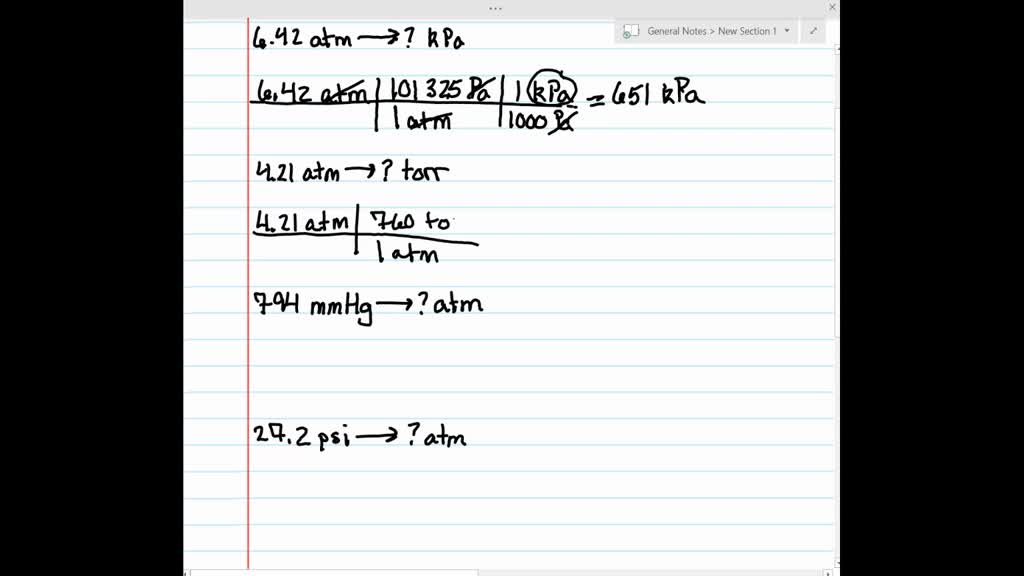 General Notes > New Section 1
6.42 atm → ? kPa
6.42 atm | 101 325 Pa | 1 kPa = 651 kPa
1 atm | 1000 Pa
4.21 atm → ? torr
4.21 atm | 760 to
1 atm
794 mmHg → ? atm
27.2 psi → ? atm